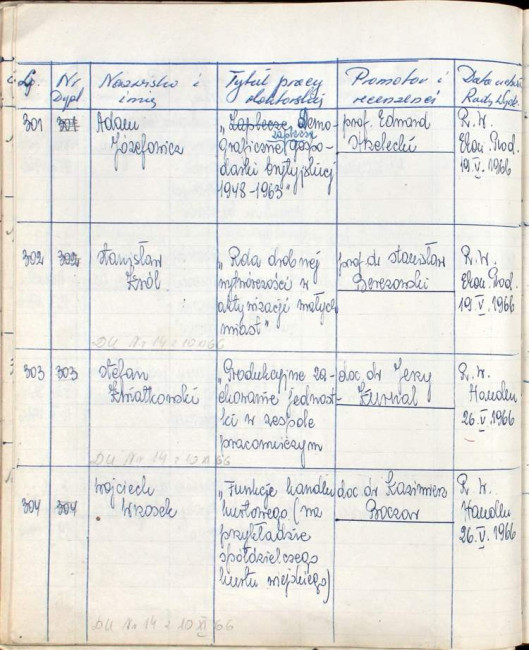 Lp.
Nr
Dypl
Nazwisko i
imię
Tytuł pracy
doktorskiej
Promotor i
recenzenci
Data uchw.
Rady Wydz.
301
301
Adam
Józefowicz
„Zaplecze Demo-
graficzne gospo-
darki brytyjskiej
1948-1963"
prof. Edmund
Strzelecki
R.W.
Ekon. Prod.
19.V.1966
302
302
Stanisław
Król
„Rola drobnej
wytwórczości w
aktywizacji małych
miast"
prof dr Stanisław
Berezowski
R.W.
Ekon. Prod.
19.V.1966
DU Nr 14 z 10 XI 66
303
303
Stefan
Kwiatkowski
„Produkcyjne za-
chowanie jednost-
ki w zespole
pracowniczym
doc dr Jerzy
Kurnal
R.W.
Handlu
26.V.1966
DU Nr 14 z 10 XI 66
304
304
Wojciech
Wrzosek
„Funkcje handlu
hurtowego (na
przykładzie
spółdzielczego
hurtu wiejskiego)
doc dr Kazimierz
Boczar
R.W.
Handlu
26.V.1966
DU Nr 14 z 10 XI 66